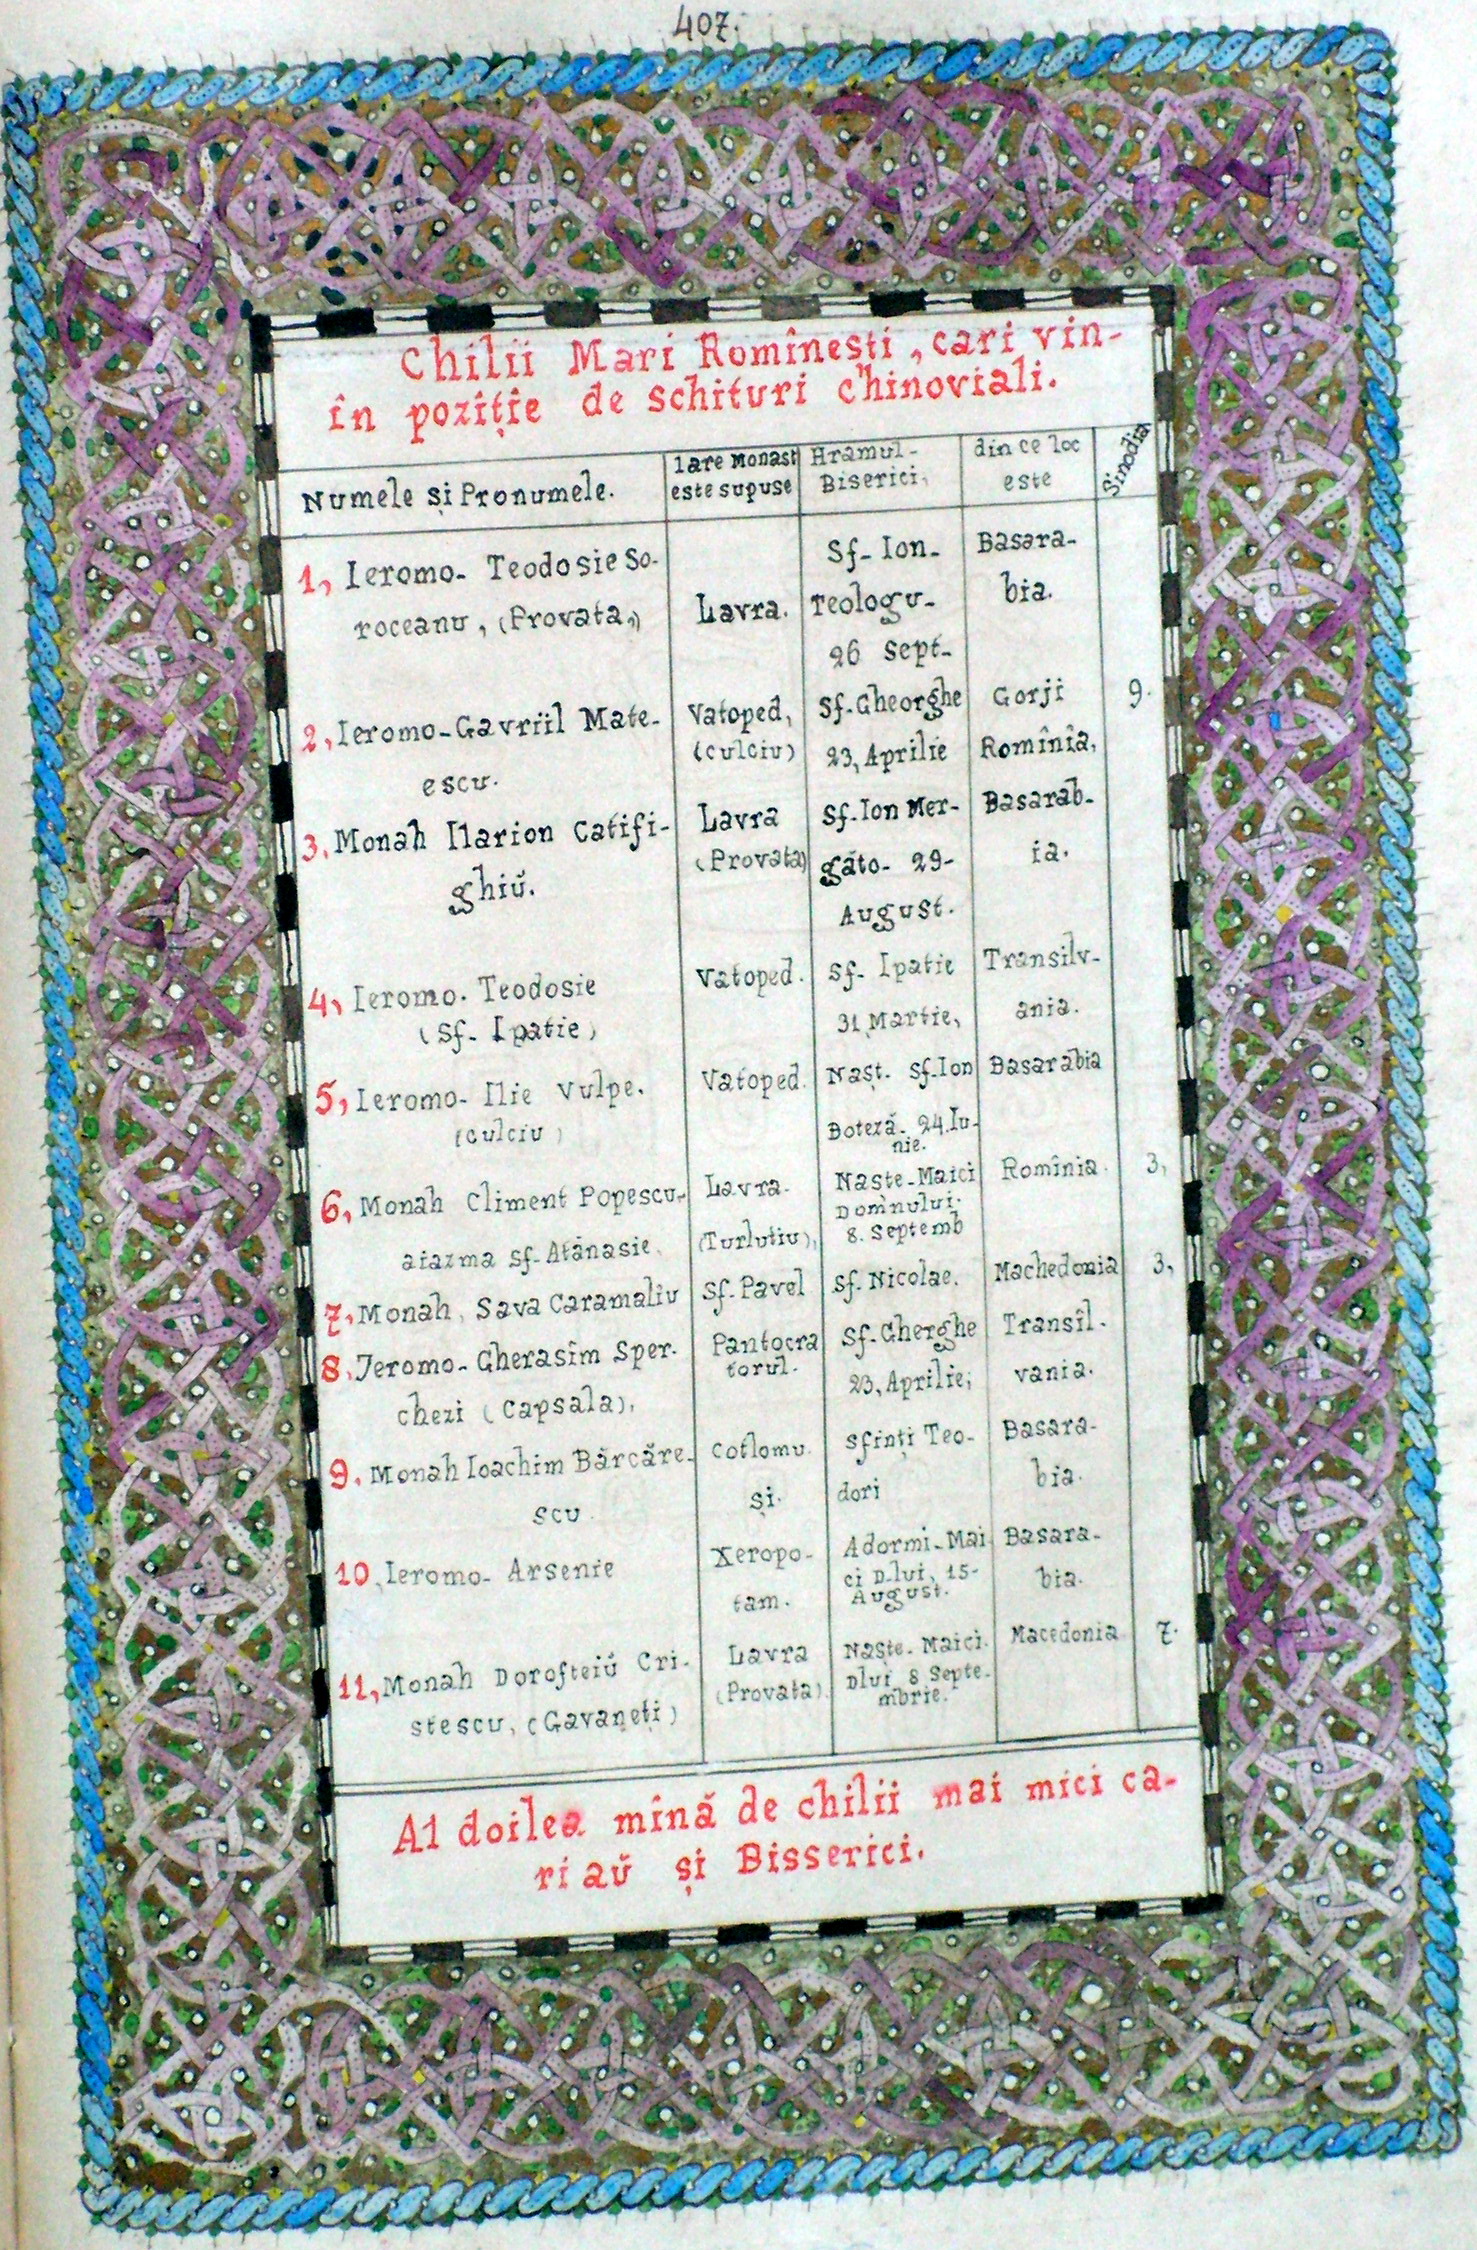 407.
Chilii Mari Romînești, cari vin-
în poziție de schituri chinoviali.
Numele și Pronumele.
lare Monast
este supuse
Hramul-
Biserici,
din ce loc
este
Sinodia
1, Ieromo- Teodosie So-
roceanu, (Provata,)
Lavra.
Sf- Ion-
Teologu-
26 Sept-
Basara-
bia.
2, Ieromo-Gavriil Mate-
escu.
Vatoped,
(Culciu)
Sf-Gheorghe
23, Aprilie
Gorji
Romînîa,
9.
3. Monah Ilarion Catifi-
ghiŭ.
Lavra
(Provata)
Sf-Ion Mer-
găto- 29-
August.
Basarab-
ia.
4, Ieromo. Teodosie
(Sf- Ipatie)
Vatoped.
Sf- Ipatie
31, Martie,
Transilv-
ania.
5, Ieromo- Ilie Vulpe.
(Culciu)
Vatoped.
Naşt. Sf-Ion
Boteză. 24. Iu-
nie.
Basarabia
6, Monah Climent Popescu-
aiazma Sf-Atănasie,
Lavra.
(Turlutiu),
Naste-Maici
Domnului.
8. Septemb
Romînia.
3,
7, Monah, Sava Caramaliu
Sf-Pavel
Sf-Nicolae.
Machedonia
3,
8, Ieromo- Gherasîm Sper-
chezi (Capsala),
Pantocra
torul.
Sf-Gherghe
23, Aprilie,
Transîl-
vania.
9. Monah Ioachim Bărcăre-
scu
Cotlomu
și.
Sfinți Teo-
dori
Basara-
bia.
10, Ieromo- Arsenie
Xeropo-
tam.
Adormi-Mai
ci D-lui, 15-
August.
Basara-
bia.
11, Monah Dorofteiŭ Cri-
stescu, (Gavaneți)
Lavra
(Provata)
Naște- Maici.
Dlui 8 Septe-
mbrie.
Macedonia
7.
Al doilea mînă de chilii mai mici ca-
ri aŭ și Bisserici.